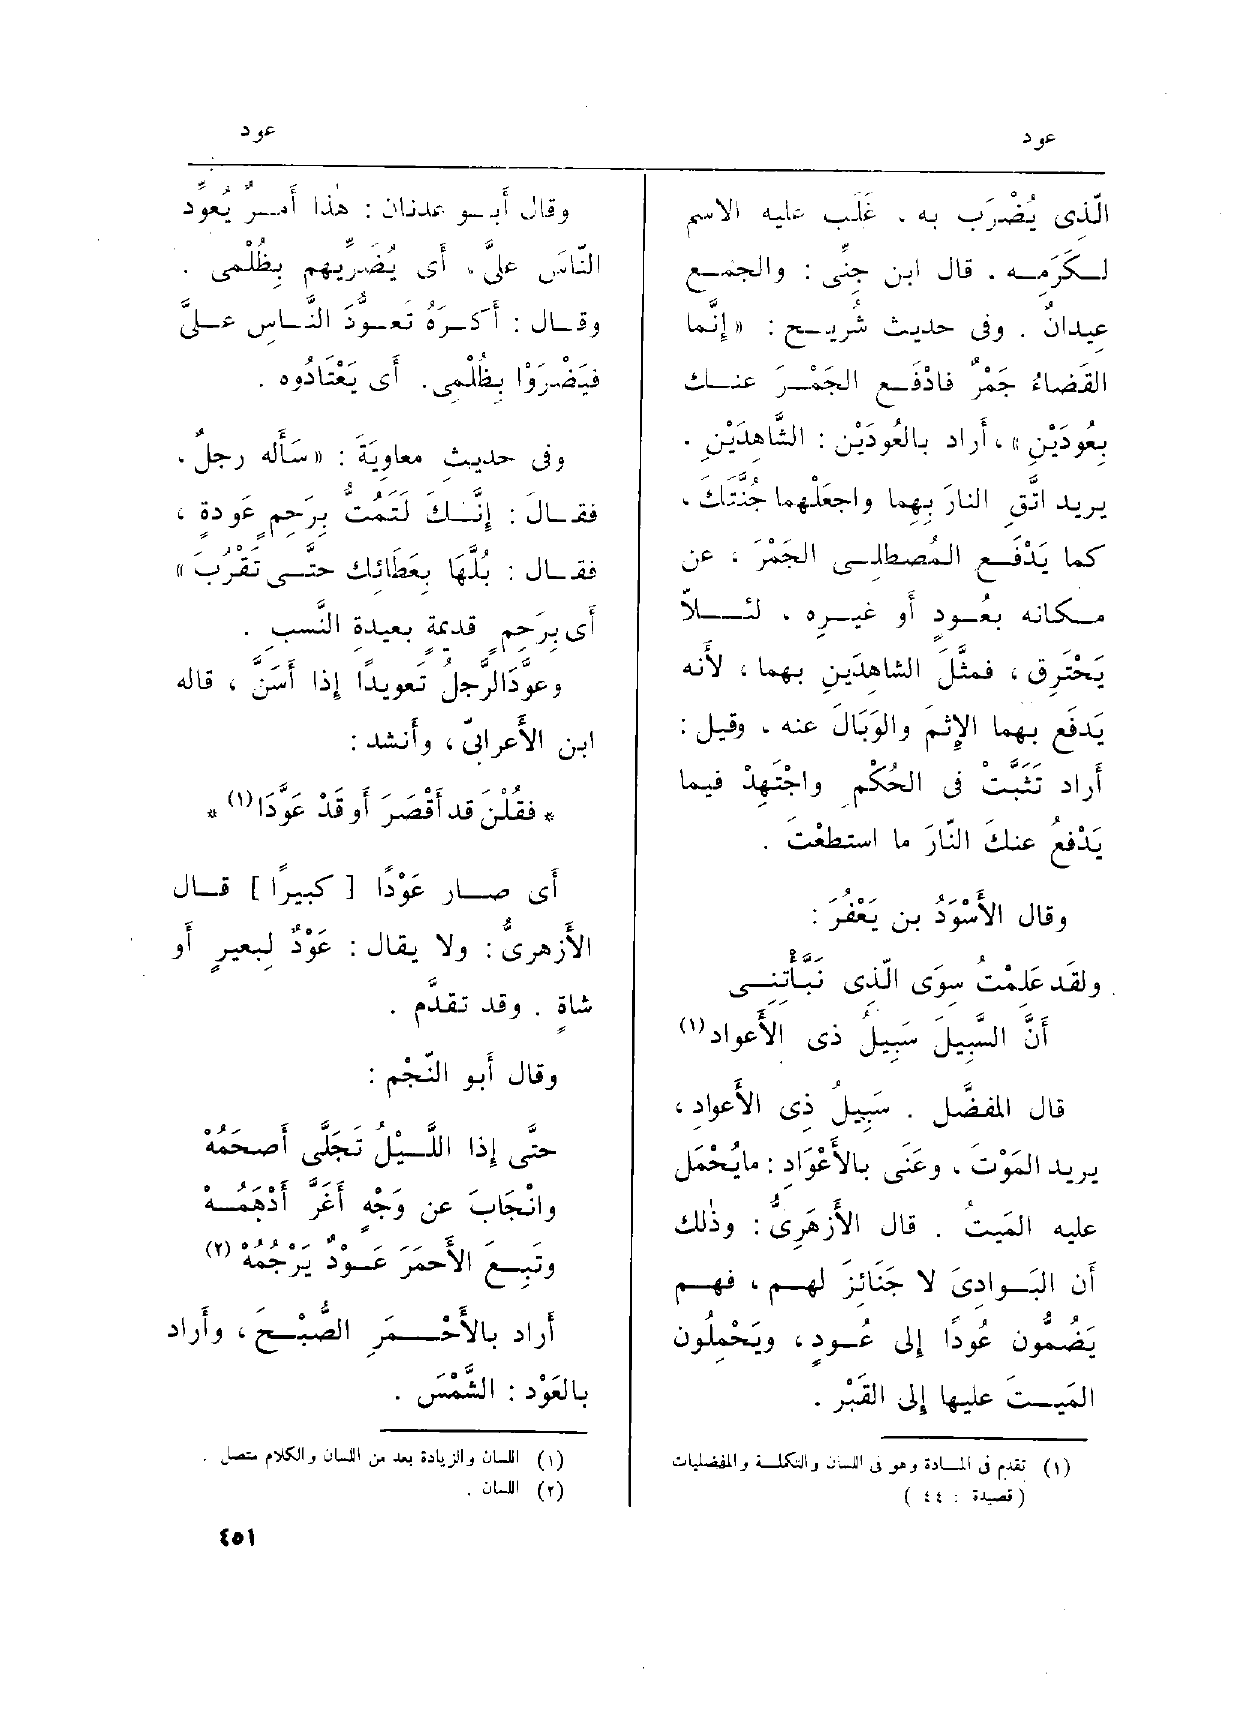 عود
عود
الّذى يُضْرَب به ، غَلَب عليه الاسم
لـكَرَمِـه . قال ابن جِنِّى : والجمـع
عِيدانٌ . وفى حديث شُرَيـح : « إِنَّما
القَضاءُ جَمْرٌ فادْفَـع الجَمْـرَ عنـك
بِعُودَيْنِ » ، أراد بالعُودَيْن : الشَّاهِدَيْنِ .
يريد اتَّقِ النارَ بِهما واجعَلْهما جُنَّتَكَ ،
كما يَدْفَـع المُصطلِـى الجَمْرَ ، عن
مـكانه بعُـودٍ أو غيـره ، لئـــلاَّ
يَحْتَرِق ، فمثَّلَ الشاهِدَيْنِ بهما ، لأَنه
يَدفَع بهما الإِثمَ والوَبَالَ عنه ، وقيل :
أراد تَثَبَّتْ فى الحُكْمِ واجْتَهِدْ فيما
يَدْفعُ عنكَ النّارَ ما استطعْتَ .
وقال الأَسْوَدُ بن يَعْفُرَ :
ولقَد عَلِمْتُ سِوَى الّذى نَبَّأْتِنِــى
أَنَّ السَّبِيلَ سَبِيلُ ذى الأَعوادِ (١)
قال المفضَّل . سَبِيلُ ذى الأَعوادِ ،
يريد المَوْتَ ، وعَنَى بالأَعْوَادِ : مايُحْمَل
عليه المَيتُ . قال الأَزهَرِىُّ : وذٰلك
أن البَـوادِىَ لا جَنَائزَ لهـم ، فهـم
يَضُمُّون عُودًا إلى عُـودٍ ، ويَحْمِلُون
المَيـتَ عليها إلى القَبْرِ .
(١) تقدم فى المـادة وهو فى اللسان والتكلـة والمفضليات
( قصيدة : ٤٤ )
وقال أَبـو عدنان : هٰذا أَمـرٌ يُعوِّد
النّاسَ علىَّ ، أى يُضَرِّيهم بِظُلْمى .
وقـال : أكـرَهُ تَعـوُّدَ النَّـاس عـلىَّ
فيَضْرَوْا بِظُلْمِى. أى يَعْتَادُوه .
وفى حديث معاويَةَ : « سَأَله رجلٌ ،
فقـالَ : إِنَّـكَ لَتَمُتُّ بِرَحِمٍ عَودةٍ ،
فقـال : بُلَّهَا بعَطَائكَ حتَّـى تَقْرُبَ »
أى بِرَحِمٍ قديمةٍ بعيدةِ النَّسبِ .
وعوَّدَالرَّجلُ تَعويدًا إذا أَسَنَّ ، قاله
ابن الأَعرابىّ ، وأَنشد :
* فقُلْنَ قد أَقْصَرَ أو قَدْ عَوَّدَا (١) *
أى صـار عَوْدًا [ كبيرًا ] قـال
الأَزهرىُّ : ولا يقال : عَوْدٌ لِبعيرٍ أَو
شاةٍ . وقد تقدَّم .
وقال أَبو النَّجْم :
حتَّى إذا اللَّـيْلُ تَجَلَّى أَصحَمُهْ
وانْجَابَ عن وَجْهٍ أَغَرَّ أَدْهَمُـهْ
وتَبِـعَ الأَحمَرَ عَـوْدٌ يَرْجُمُهْ (٢)
أراد بالأَحْـــمَرِ الصُّبْـحَ ، وأراد
بالعَوْد : الشَّمْسَ .
(١) اللسان والزيادة بعد من اللسان والكلام متصل .
(٢) اللسان .
٤٥١